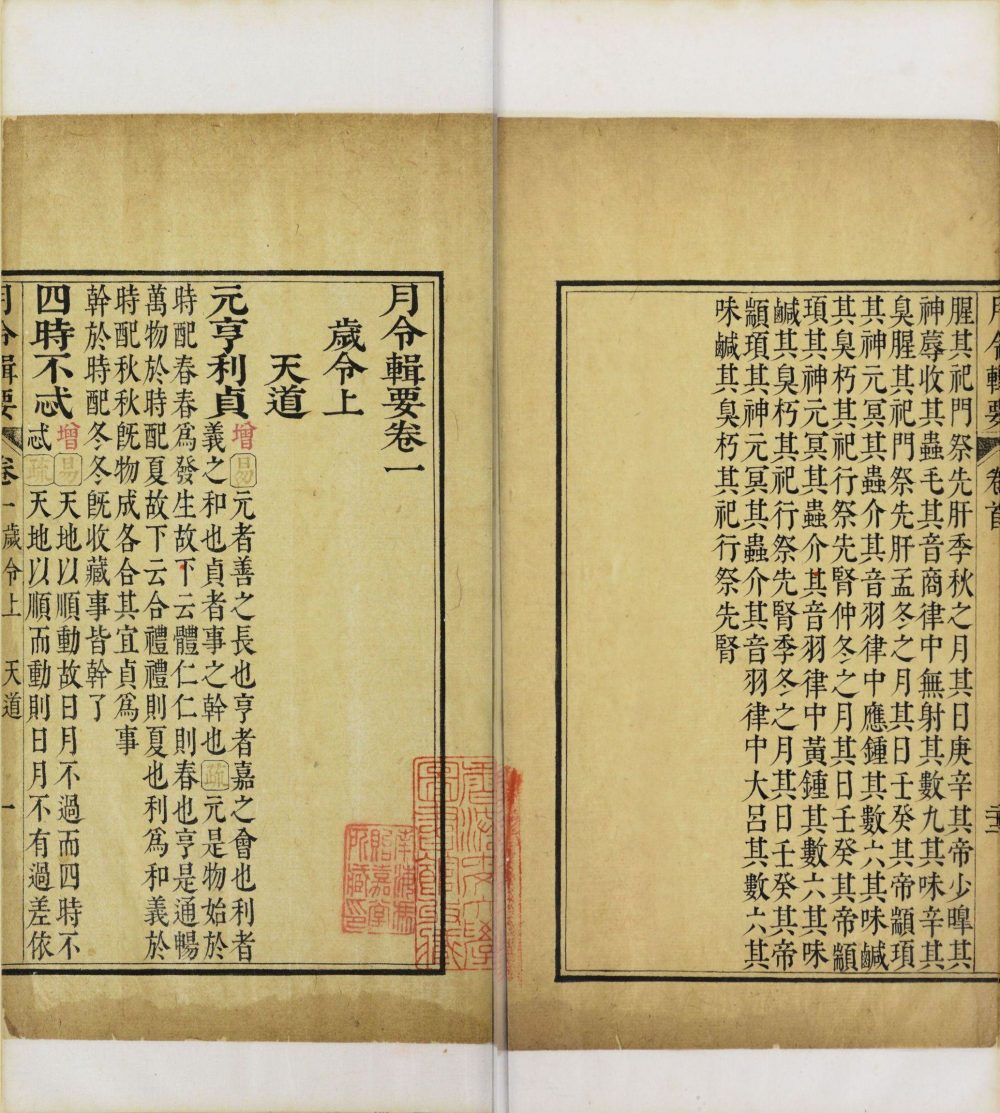 月令輯要 卷首
腥其祀門祭先肝季秋之月其日庚辛其帝少暤其
神蓐收其蟲毛其音商律中無射其數九其味辛其
臭腥其祀門祭先肝孟冬之月其日壬癸其帝顓頊
其神元冥其蟲介其音羽律中應鍾其數六其味鹹
其臭朽其祀行祭先腎仲冬之月其日壬癸其帝顓
頊其神元冥其蟲介其音羽律中黃鍾其數六其味
鹹其臭朽其祀行祭先腎季冬之月其日壬癸其帝
顓頊其神元冥其蟲介其音羽律中大呂其數六其
味鹹其臭朽其祀行祭先腎
月令輯要卷一
歲令上
天道
元亨利貞增易元者善之長也亨者嘉之會也利者
義之和也貞者事之幹也疏元是物始於
時配春春爲發生故下云體仁仁則春也亨是通暢
萬物於時配夏故下云合禮禮則夏也利爲和義於
時配秋秋旣物成各合其宜貞爲事
幹於時配冬冬旣收藏事皆幹了
四時不忒增易天地以順動故日月不過而四時不
忒疏天地以順而動則日月不有過差依
月令輯要 卷一 歲令上 天道 一
南海馮
貽嘉堂
所藏印